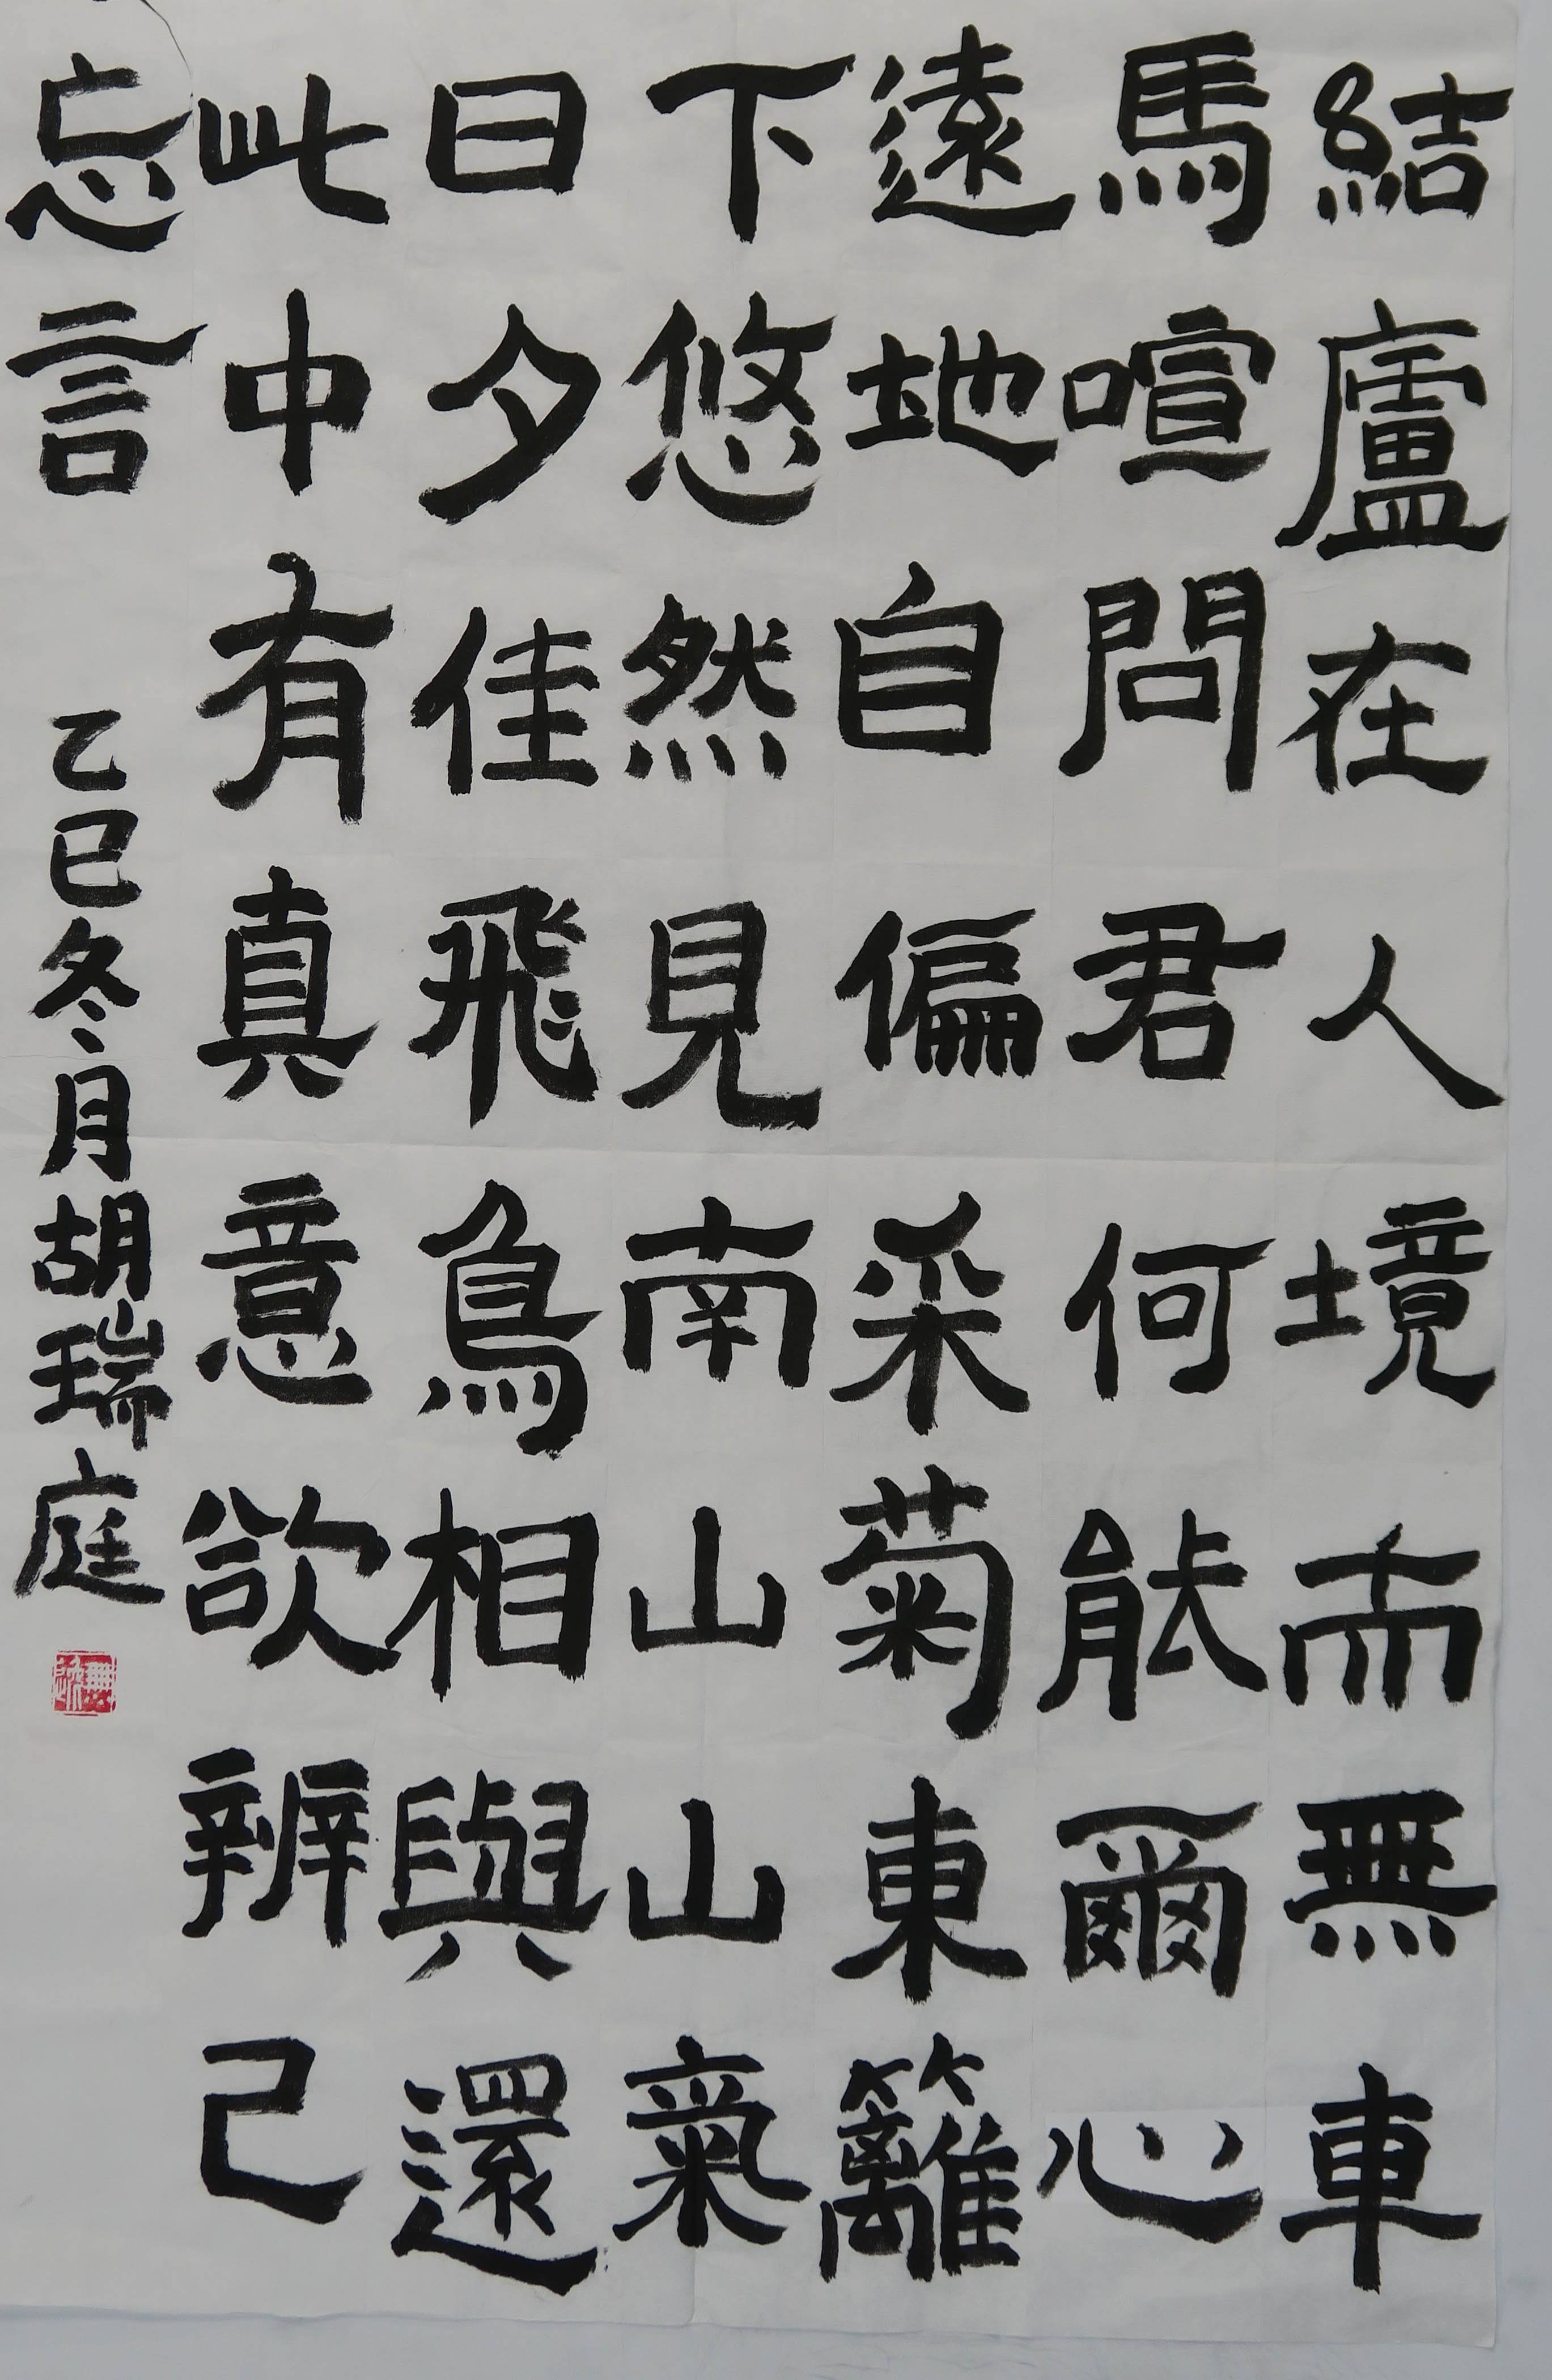 結廬在人境而無車
馬喧問君何能爾心
遠地自偏采菊東籬
下悠然見南山山氣
日夕佳飛鳥相與還
此中有真意欲辨已
忘言
乙巳冬月胡瑞庭